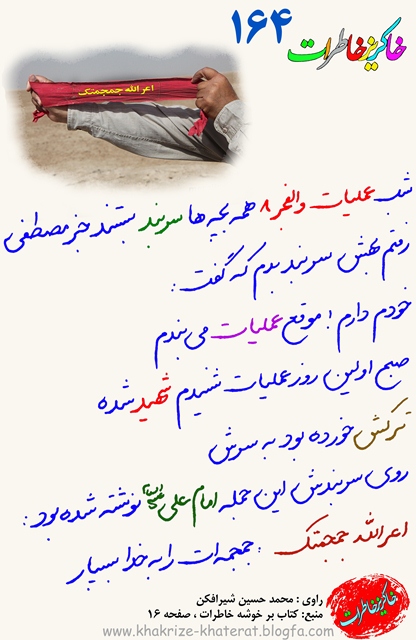 خاکریز خاطرات ۱۶۴
اعر الله جمجمتک
شب عملیات والفجر ۸ همه بچه ها سربند بستند جز مصطفی
رفتم بهش سربند بدم که گفت :
خودم دارم ؛ موقع عملیات می بندم
صبح اولین روز عملیات شنیدم شهید شده
ترکش خورده بود به سرش
روی سربندش این جمله امام علی علیه السلام نوشته شده بود :
اعرالله جمجمتک : جمجمه ات را به خدا بسپار
راوی : محمد حسین شیرافکن
منبع: کتاب بر خوشه خاطرات ، صفحه ۱۶
خاکریز خاطرات
www.khakrize-khaterat.blogfa.com